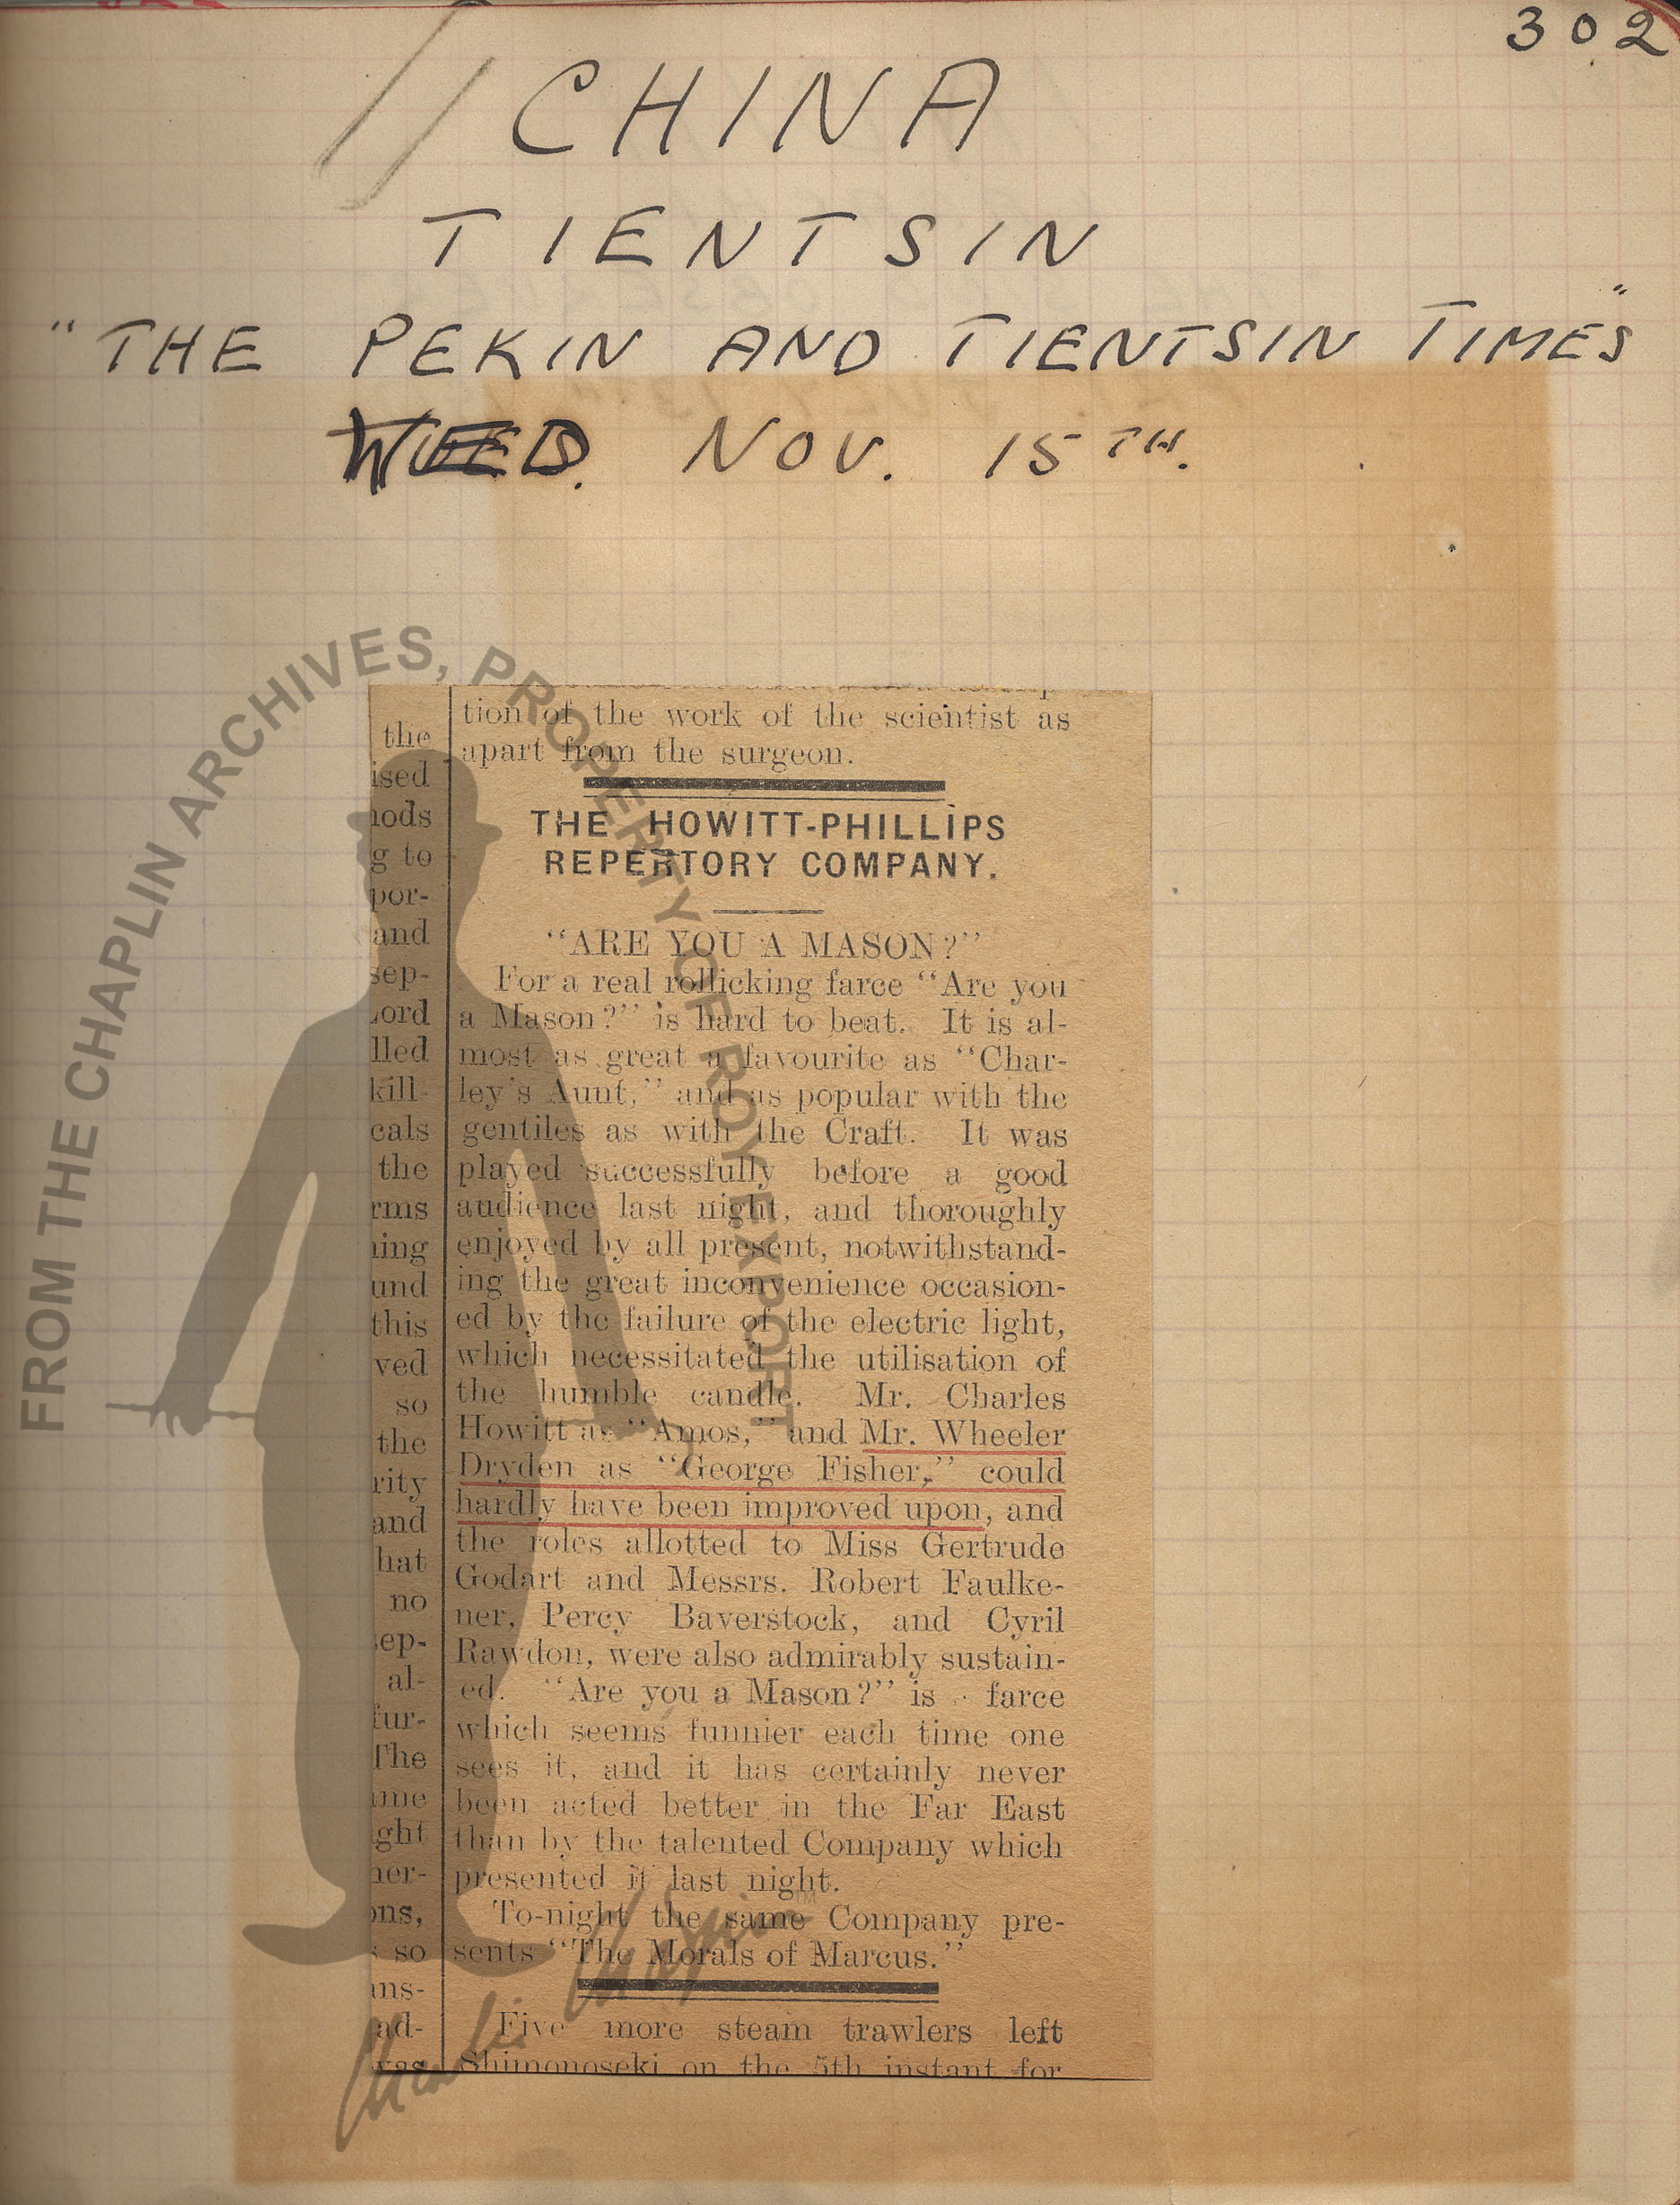 302
CHINA
TIENTSIN
"THE PEKIN AND TIENTSIN TIMES"
WED. NOV. 15TH.
FROM THE CHAPLIN ARCHIVES, PROPERTY OF ROY EXPORT
tion of the work of the scientist as
apart from the surgeon.
THE HOWITT-PHILLIPS
REPERTORY COMPANY.
"ARE YOU A MASON?"
For a real rollicking farce "Are you
a Mason?" is hard to beat. It is al-
most as great a favourite as "Char-
ley's Aunt," and as popular with the
gentiles as with the Craft. It was
played successfully before a good
audience last night, and thoroughly
enjoyed by all present, notwithstand-
ing the great inconvenience occasion-
ed by the failure of the electric light,
which necessitated the utilisation of
the humble candle. Mr. Charles
Howitt as "Amos," and Mr. Wheeler
Dryden as "George Fisher," could
hardly have been improved upon, and
the roles allotted to Miss Gertrude
Godart and Messrs. Robert Faulke-
ner, Percy Baverstock, and Cyril
Rawdon, were also admirably sustain-
ed. "Are you a Mason?" is farce
which seems funnier each time one
sees it, and it has certainly never
been acted better in the Far East
than by the talented Company which
presented it last night.
To-night the same Company pre-
sents "The Morals of Marcus."
Five more steam trawlers left
Shimonoseki on the 5th instant for
the
ised
nods
g to
por-
and
sep-
ord
lled
kill-
cals
the
rms
ning
und
this
ved
so
the
rity
and
hat
no
sep-
al-
fur-
The
ame
ght
her-
ons,
so
ans-
ad-
was
Charlie Chaplin
TM